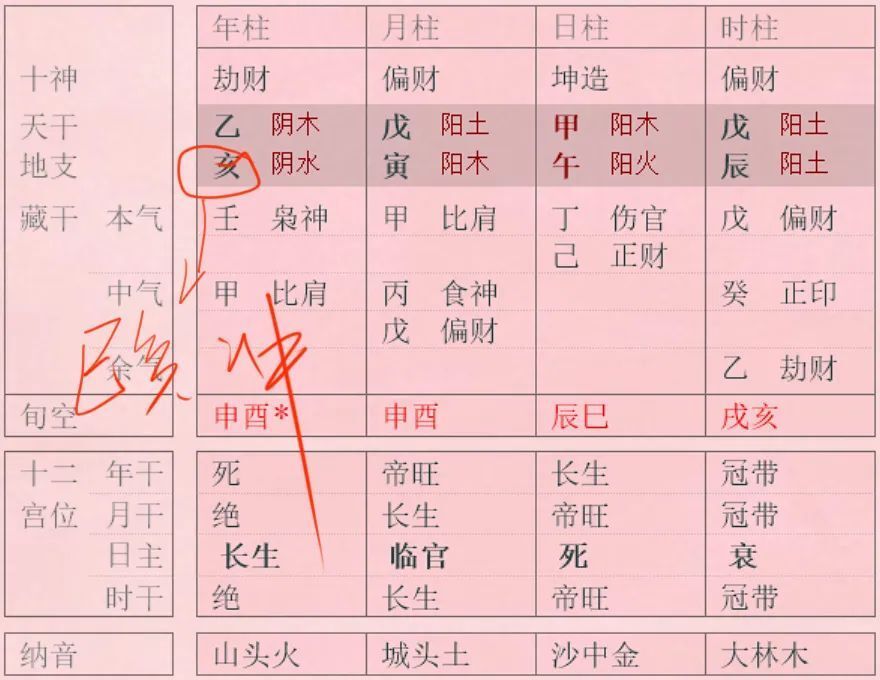 年柱 月柱 日柱 时柱
十神 劫财 偏财 坤造 偏财
天干 乙 阴木 戊 阳土 甲 阳木 戊 阳土
地支 亥 阴水 寅 阳木 午 阳火 辰 阳土
藏干 本气 壬 枭神 甲 比肩 丁 伤官 戊 偏财
己 正财
中气 甲 比肩 丙 食神 癸 正印
戊 偏财
巳亥冲
余气 乙 劫财
旬空 申酉* 申酉 辰巳 戌亥
十二 年干 死 帝旺 长生 冠带
宫位 月干 绝 长生 帝旺 冠带
日主 长生 临官 死 衰
时干 绝 长生 帝旺 冠带
纳音 山头火 城头土 沙中金 大林木